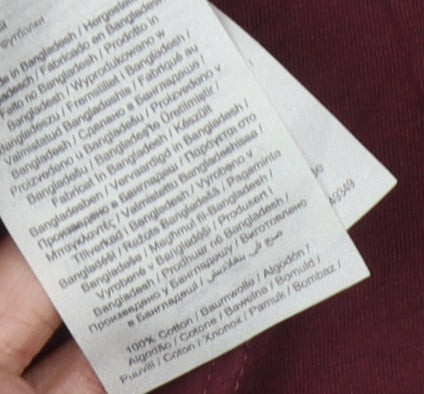 Футболки
in Bangladesh / Hergestellt
/ Fabricado en Bangladesh
Feito no Bangladesh / Prodotto in
Bangladesh / Wyprodukowano w
Bangladeszu / Fremstillet i Bangladesh /
Valmistatud Bangladeshis / Fabriqué au
Bangladesh / Сделано в Бангладеш /
Proizvedeno u Bangladešu / Proizvedeno v
Bangladešu / Bangladeş'te Üretilmiştir /
Fabricat în Bangladesh / Készült
Bangladesben / Vervaardigd in Bangladesh /
Произведено в Бангладеш / Παράγεται στο
Μπανγκλαντές / Valmistettu Bangladeshissa /
Tillverkad i Bangladesh / Vyrobeno v
Bangladéši / Ražots Bangladešā / Pagaminta
Bangladeše / Magħmul fil-Bangladesh /
Vyrobené v Bangladéši / Produsert i
Bangladesh / Prodhuar në Bangladesh /
Произведено у Бангладешу / Виготовлено
в Бангладеш / صنع في بنغلاديش
100% Cotton / Baumwolle / Algodón /
Algodão / Cotone / Bawełna / Bomuld /
Puuvill / Coton / Хлопок / Pamuk / Bombaž /
49349